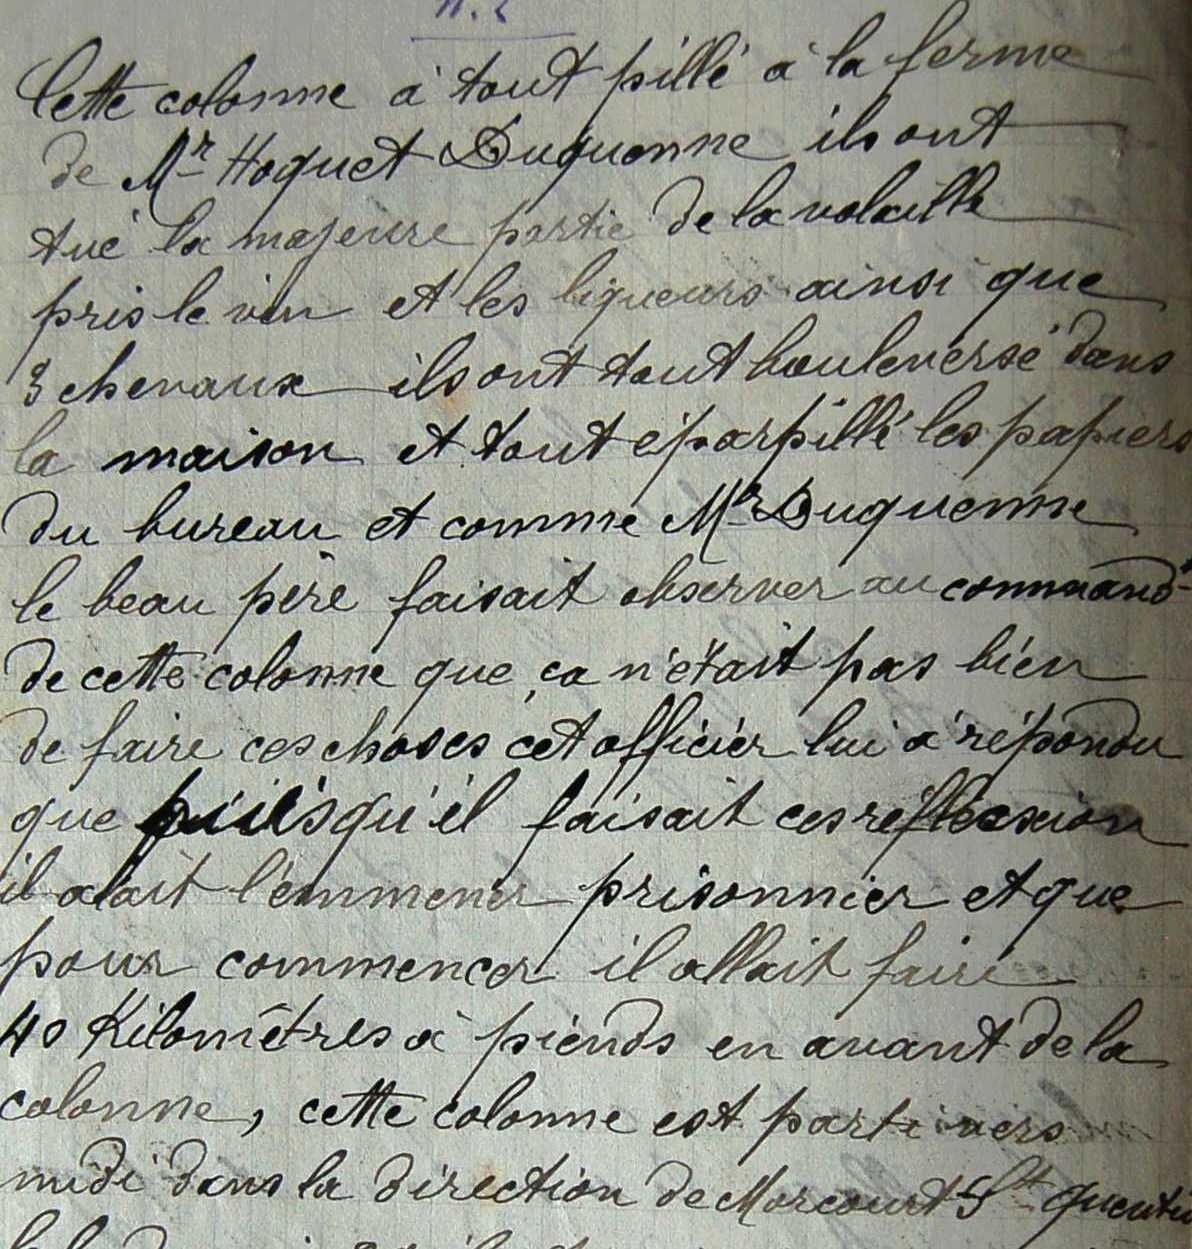 N. 2
Cette colonne à tout pillé à la ferme
de Mr Hoquet Duquenne ils ont
tué la majeure partie de la volaille
pris le vin et les liqueurs ainsi que
3 chevaux ils ont tout bouleversé dans
la maison et tout éparpillé les papiers
du bureau et comme Mr Duquenne
le beau père faisait observer au command
de cette colonne que ça n'était pas bien
de faire ces choses cet officier lui à répondu
que puisqu'il faisait ces réflecxion
il alait l'emmener prisonnier et que
pour commencer il allait faire
40 Kilomètres à pieds en avant de la
colonne, cette colonne est parti vers
midi dans la direction de Morcourt St quentin